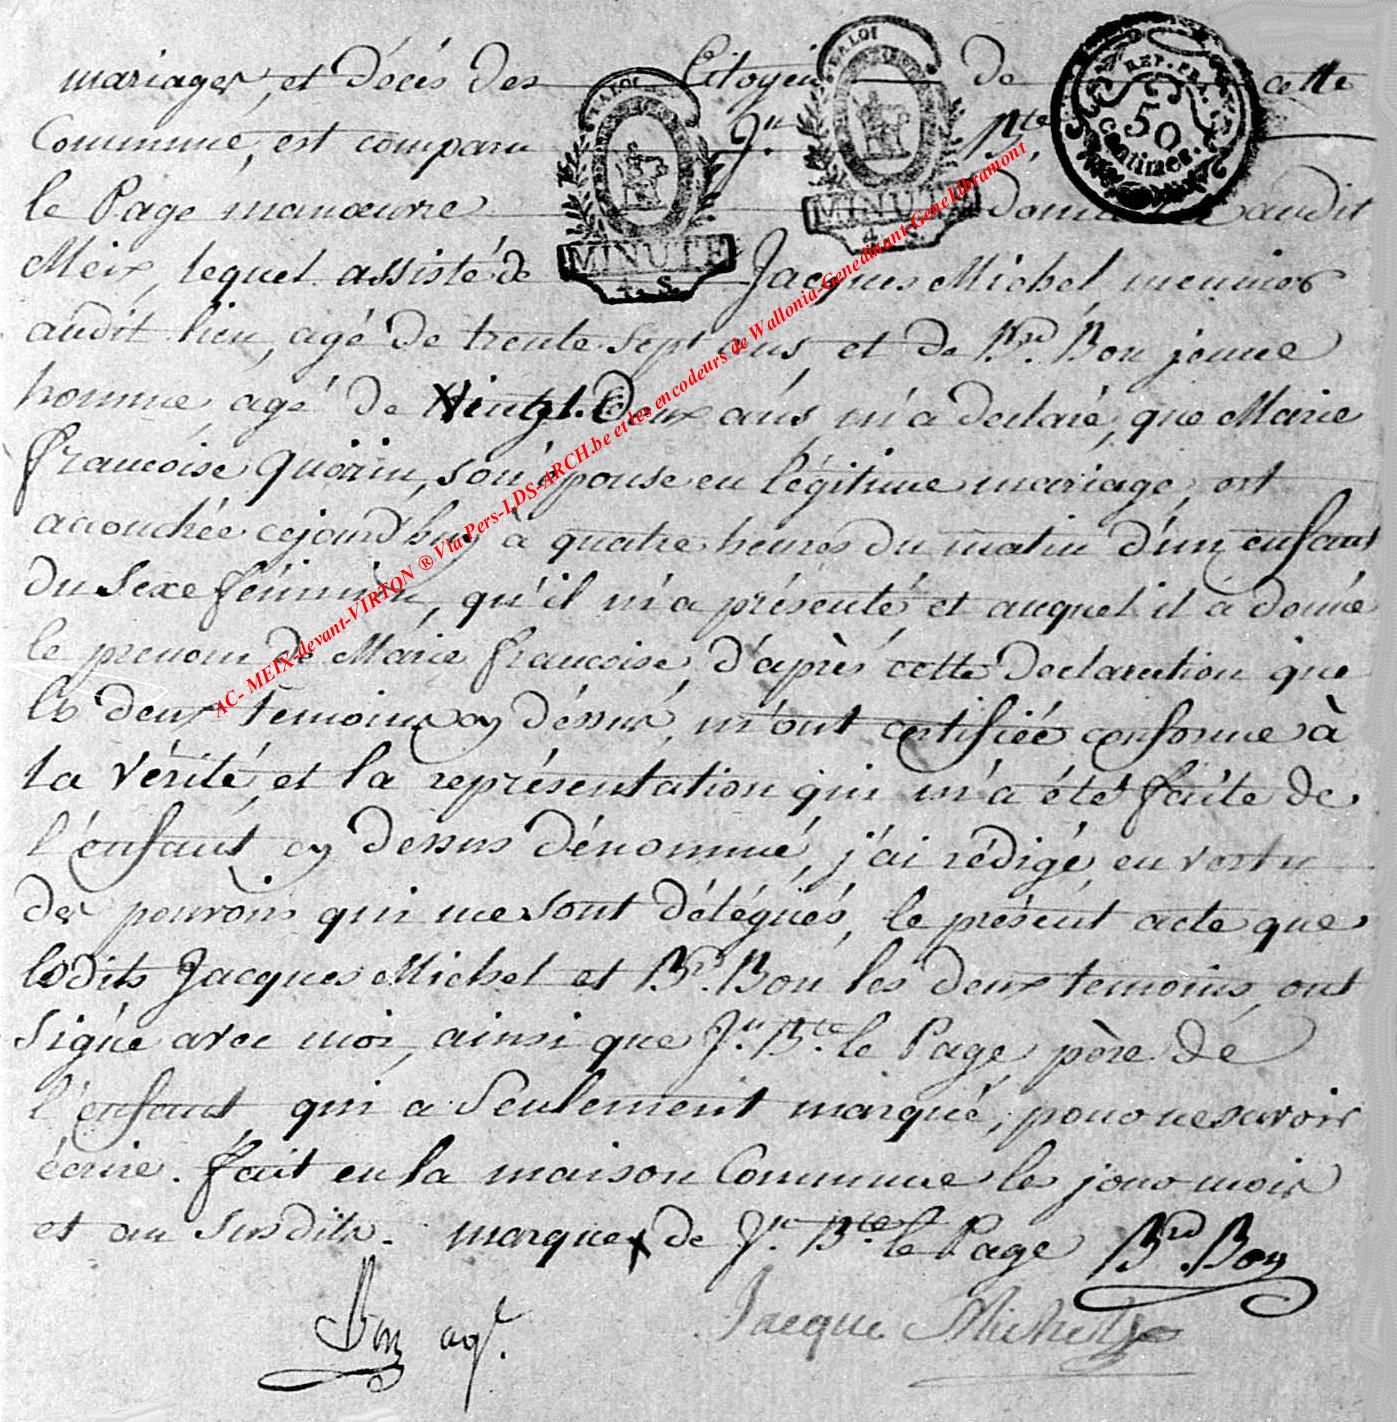 mariages, et décés des Citoyens de cette
Commune, est comparu Jn. Bte.
le Page manœuvre domicilié audit
Meix, lequel assisté de Jacques Michel, meunier
audit lieu, agé de trente sept ans, et de Brd. Bon jeune
homme, agé de Vingt-Deux ans, m'a declaré, que Marie
francoise Quirin, son épouse en légitime mariage, est
accouchée cejourd'huy à quatre heures du matin d'un enfant
du Sexe féminin, qu'il m'a présenté et auquel il a donné
le prenom de Marie francoise, d'après cette Declaration que
les deux témoins cy déssus, m'ont certifiée conforme à
la Vérité, et la représentation qui m'a été faite de
l'enfant cy dessus dénommé, j'ai rédigé en vertu
des pouvoirs qui me sont délégués, le présent acte que
lesdits Jacques Michel et Brd. Bon les deux temoins, ont
signé avec moi, ainsi que Jn. Bte. le Page, père de
l'enfant, qui a Seulement marqué, pour ne savoir
écrire. fait en la maison Commune les jour mois
et an susdits. marque x de Jn. Bte. le Page Brd. Bon
Bon agt. Jacque Michel
LA LOI
MINUTE
4. S.
LA LOI
MINUTE
REP. FRA.
50
Centimes.
AC- MEIX-devant-VIRTON ® Via Pers-LDS-ARCH.be et les encodeurs de Wallonia-Genedinant-GeneLibramont